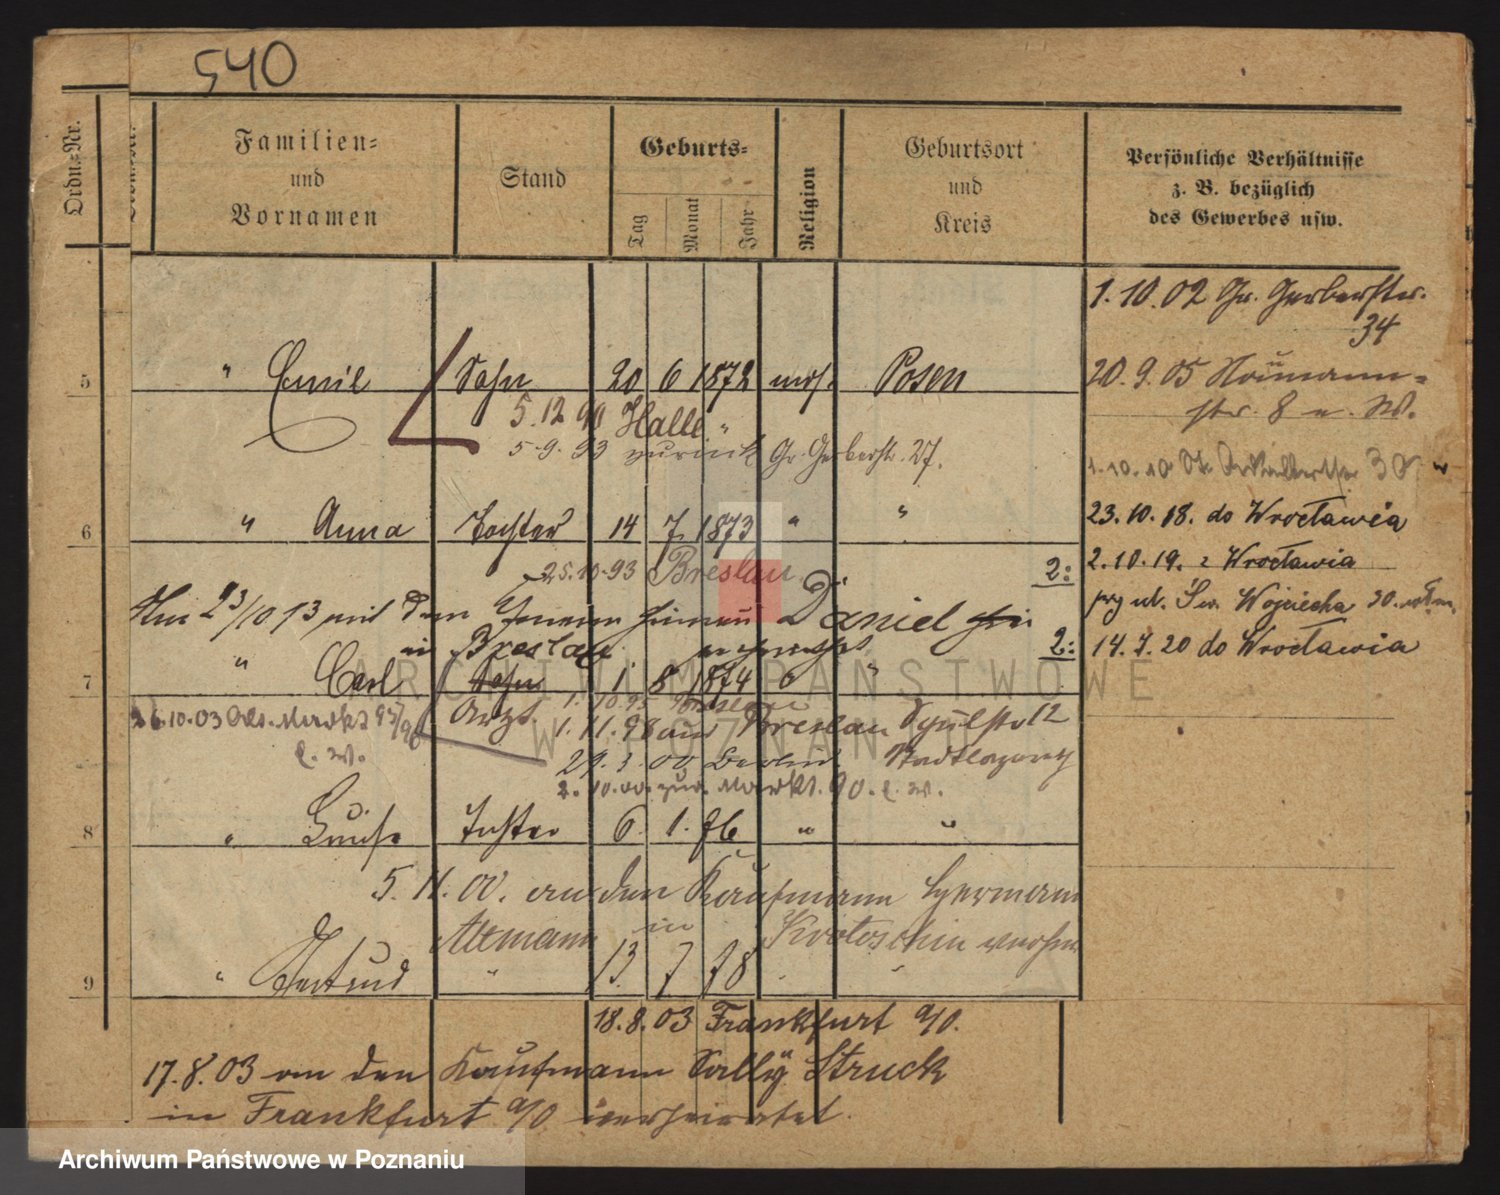 540
Ordn.-Nr.
Familien-
und
Vornamen
Stand
Geburts-
Tag
Monat
Jahr
Religion
Geburtsort
und
Kreis
Persönliche Verhältnisse
z. B. bezüglich
des Gewerbes usw.
1.10.02 Gr. Gerberstr.
34
5 " Emil Sohn 20 6 1872 mos. Posen
20. 9. 05 Naumann-
str. 8 u. W.
5. 12 91 Halle "
5. 9. 93 zurück Gr. Gerberstr. 27.
1.10.10 St. Adalbertstr 30
6 " Anna Tochter 14 7. 1873 " "
23. 10. 18. do Wrocławia
25.10.93 Breslau
2: 2. 10. 19. z Wrocławia
Am 23/10 13 mit dem Daniel
przy ul. Św. Wojciecha 30.
in Breslau
2: 14. 7. 20 do Wrocławia
7 " Carl Sohn 1 8 1874 " "
26.10.03 Alt. Markt
Arzt 1. 10. 93 Breslau
1. 11. 98 aus Breslau 12
l. W.
29. 3. 00 Berlin
2. 10. 00. zur. Markt. 90. l. W.
8 " Luise Tochter 6. 1. 76 " "
5. 11. 00. an den Kaufmann Hermann
Altmann in Krotoschin
9 " Gertrud " 13. 7 78 " "
18. 8. 03 Frankfurt a/O.
17. 8. 03 an den Kaufmann Sally Struck
in Frankfurt a/O verheiratet.
ARCHIWUM PAŃSTWOWE
W POZNANIU
Archiwum Państwowe w Poznaniu